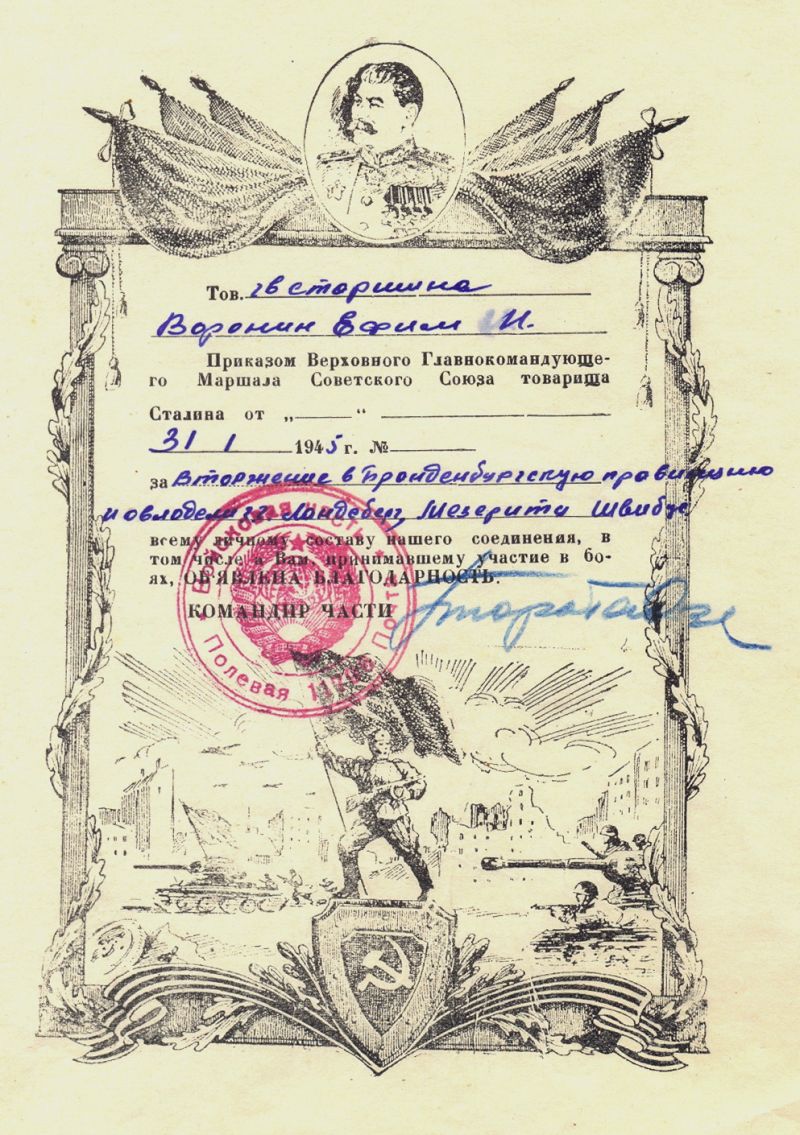 Тов. гв старшина
Воронин Ефим И.
Приказом Верховного Главнокомандующе-
го Маршала Советского Союза товарища
Сталина от „ “
31 1 1945 г. №
за Вторжение в Бранденбургскую провинцию
и овладели г.г. Ландсберг, Мезериту Швибус
всему личному составу нашего соединения, в
том числе и Вам, принимавшему участие в бо-
ях, ОБ'ЯВЛЕНА БЛАГОДАРНОСТЬ.
КОМАНДИР ЧАСТИ
Войсковая часть
Полевая Почта